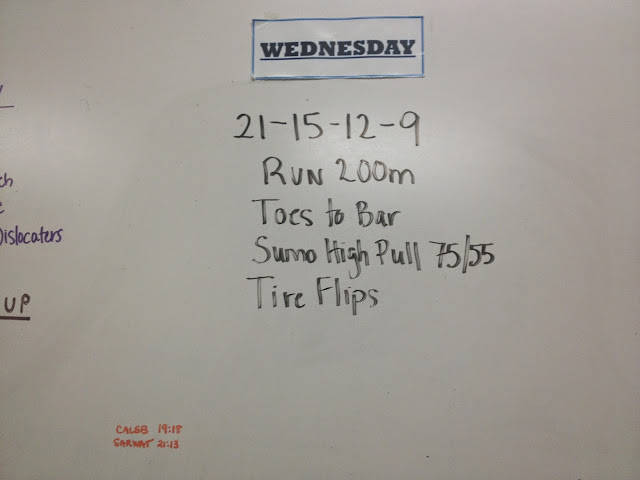 WEDNESDAY
21-15-12-9
RUN 200m
Toes to Bar
Sumo High Pull 75/55
Tire Flips
ch
e
Dislocaters
UP
CALEB 19:18
SARWAT 21:13